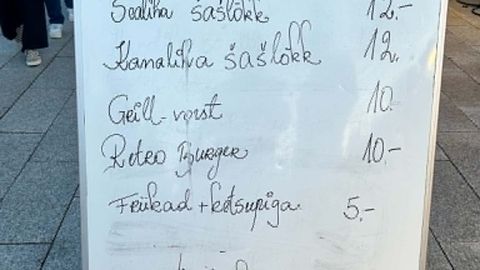 Sealiha šašlõkk 12.-
Kanaliha šašlõkk 12.
Grill-vorst 10.
Retro Burger 10.-
Friikad + ketsupiga 5.-